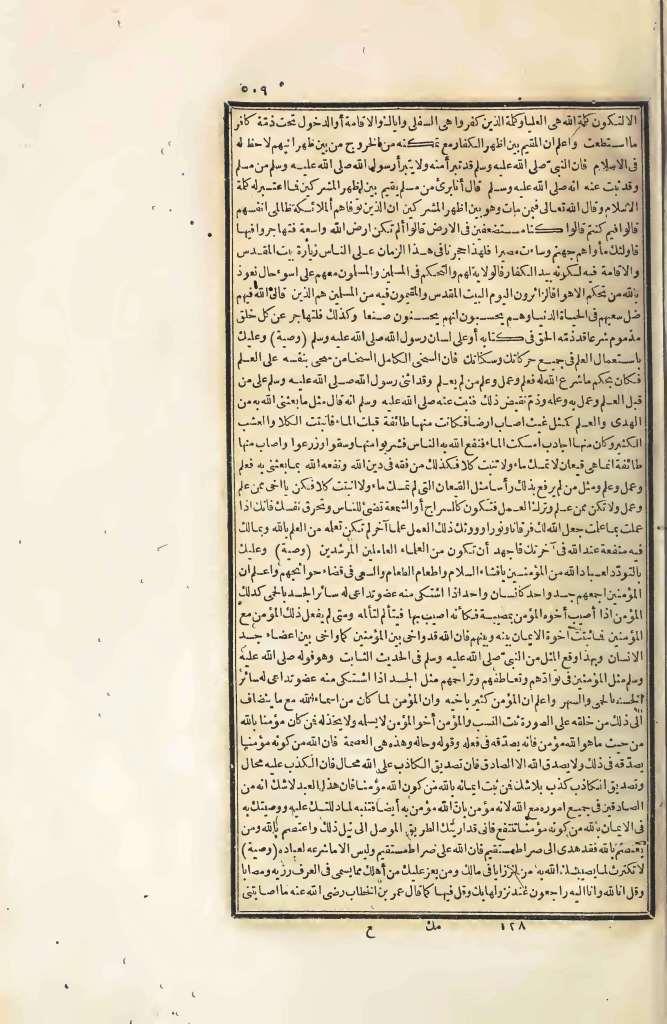 ٥٠٩
الا لتكون كلمة الله هى العليا وكلمة الذين كفروا هى السفلى واياك والاقامة أو الدخول تحت ذمة كافر
ما استطعت واعلم ان المقيم بين اظهر الكفار مع تمكنه من الخروج من بين ظهرانيهم لاحظ له
فى الاسلام فان النبى صلى الله عليه وسلم قد تبرأ منه ولا يتبرأ رسول الله صلى الله عليه وسلم من مسلم
وقد ثبت عنه انه صلى الله عليه وسلم قال أنا برئ من مسلم يقيم بين اظهر المشركين فما اعتبر له كلمة
الاسلام وقال الله تعالى فيمن مات وهو بين اظهر المشركين ان الذين توفاهم الملائكة ظالمى انفسهم
قالوا فيم كنتم قالوا كنا مستضعفين فى الارض قالوا ألم تكن ارض الله واسعة فتهاجروا فيها
فاولئك مأواهم جهنم وساءت مصيرا فلهذا حجرنا فى هذا الزمان على الناس زيارة بيت المقدس
والاقامة فيه لكونه بيد الكفار فالولاية لهم والتحكم فى المسلمين والمسلمون معهم على اسوء حال نعوذ
بالله من تحكم الاهواء فالزائرون اليوم البيت المقدس والمقيمون فيه من المسلمين هم الذين قال الله فيهم
ضل سعيهم فى الحياة الدنيا وهم يحسبون انهم يحسنون صنعا وكذلك فلتهاجر عن كل خلق
مذموم شرعا قد ذمه الحق فى كتابه أو على لسان رسول الله صلى الله عليه وسلم (وصية) وعليك
باستعمال العلم فى جميع حركاتك وسكناتك فان السخى الكامل السخا من سخى بنفسه على العلم
فكان بحكم ما شرع الله له فعلم وعمل وعلم من لم يعلم وقد اثنى رسول الله صلى الله عليه وسلم على من
قبل العلم وعمل به وعلمه وذم نقيض ذلك فثبت عنه صلى الله عليه وسلم انه قال مثل ما بعثنى الله به من
الهدى والعلم كمثل غيث اصاب ارضا فكانت منها طائفة قبلت الماء فانبتت الكلا والعشب
الكثير وكان منها اجادب أمسكت الماء فنفع الله به الناس فشربوا منها وسقوا وزرعوا واصاب منها
طائفة انما هى قيعان لا تمسك ماء ولا تنبت كلا فكذلك من فقه فى دين الله ونفعه الله بما بعثنى به فعلم
وعمل وعلم ومثل من لم يرفع بذلك رأسا مثل القيعان التى لم تمسك ماء ولا انبتت كلا فكن يا اخى ممن علم
وعمل ولا تكن ممن علم وترك العمل فتكون كالسراج أو الشمعة تضئ للناس وتحرق نفسك فانك اذا
عملت بما علمت جعل الله لك فرقانا ونورا وورثك ذلك العمل علما آخر لم تكن تعلمه من العلم بالله وبمالك
فيه منفعة عند الله فى آخرتك فاجهد أن تكون من العلماء العاملين المرشدين (وصية) وعليك
بالتودد لعباد الله من المؤمنين بافشاء السلام واطعام الطعام والسعى فى قضاء حوائجهم واعلم ان
المؤمنين اجمعهم جسد واحد كانسان واحد اذا اشتكى منه عضو تداعى له سائر الجسد بالحمى كذلك
المؤمن اذا أصيب أخوه المؤمن بمصيبة فكأنه اصيب بها فيتألم لتألمه ومتى لم يفعل ذلك المؤمن مع
المؤمنين فما ثبتت أخوة الايمان بينه وبينهم فان الله قد واخى بين المؤمنين كما واخى بين اعضاء جسد
الانسان وبهذا وقع المثل من النبى صلى الله عليه وسلم فى الحديث الثابت وهو قوله صلى الله عليه
وسلم مثل المؤمنين فى توادهم وتعاطفهم وتراحمهم مثل الجسد اذا اشتكى منه عضو تداعى له سائر
الجسد بالحمى والسهر واعلم ان المؤمن كثير باخيه وان المؤمن لما كان من اسماء الله مع ما ينضاف
الى ذلك من خلقه على الصورة ثبت النسب والمؤمن أخو المؤمن لا يسلمه ولا يخذله فمن كان مؤمنا بالله
من حيث ما هو الله مؤمن فانه يصدقه فى فعله وقوله وحاله وهذه هى العصمة فان الله من كونه مؤمنا
يصدقه فى ذلك ولا يصدق الله الا الصادق فان تصديق الكاذب على الله محال فان الكذب عليه محال
وتصديق الكاذب كذب بلا شك فمن ثبت ايمانه بالله من كون الله مؤمنا فان هذا العبد لا شك انه من
الصادقين فى جميع اموره مع الله لانه مؤمن بان الله مؤمن به أيضا فتنبه لما دللتك عليه ووصيتك به
فى الايمان بالله من كونه مؤمنا تنتفع فانى قد اريتك الطريق الموصل الى نيل ذلك واعتصم بالله ومن
يعتصم بالله فقد هدى الى صراط مستقيم فان الله على صراط مستقيم وليس الا ما شرعه لعباده (وصية)
لا تكترث لما يصيبك الله به من الرزايا فى مالك ومن يعز عليك من أهلك مما يسمى فى العرف رزية ومصابا
وقل انا لله وانا اليه راجعون عند نزولها بك وقل فيها كما قال عمر بن الخطاب رضى الله عنه ما اصابتنى
١٢٨ مك ع